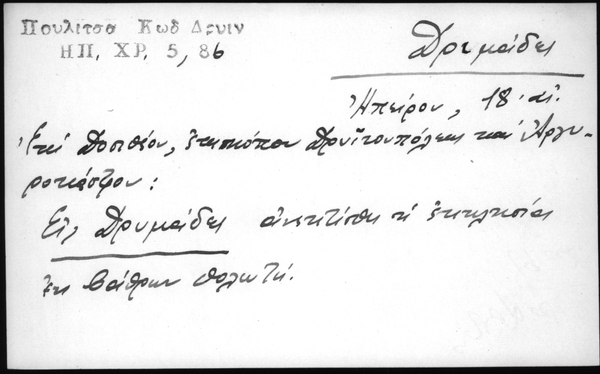 Πουλίτσα Κωδ Δρυιν
ΗΠ. ΧΡ. 5, 86
Δρυμάδες
Ἠπείρου, 18. αἰ.
Ἐπί Δοσιθέου, ἐπισκόπου Δρυϊνουπόλεως καί Ἀργυ-
ροκάστρου:
Εἰς Δρυμάδες ἀνεκτίσθη ἡ ἐκκλησία
ἐκ βάθρων θολωτή.